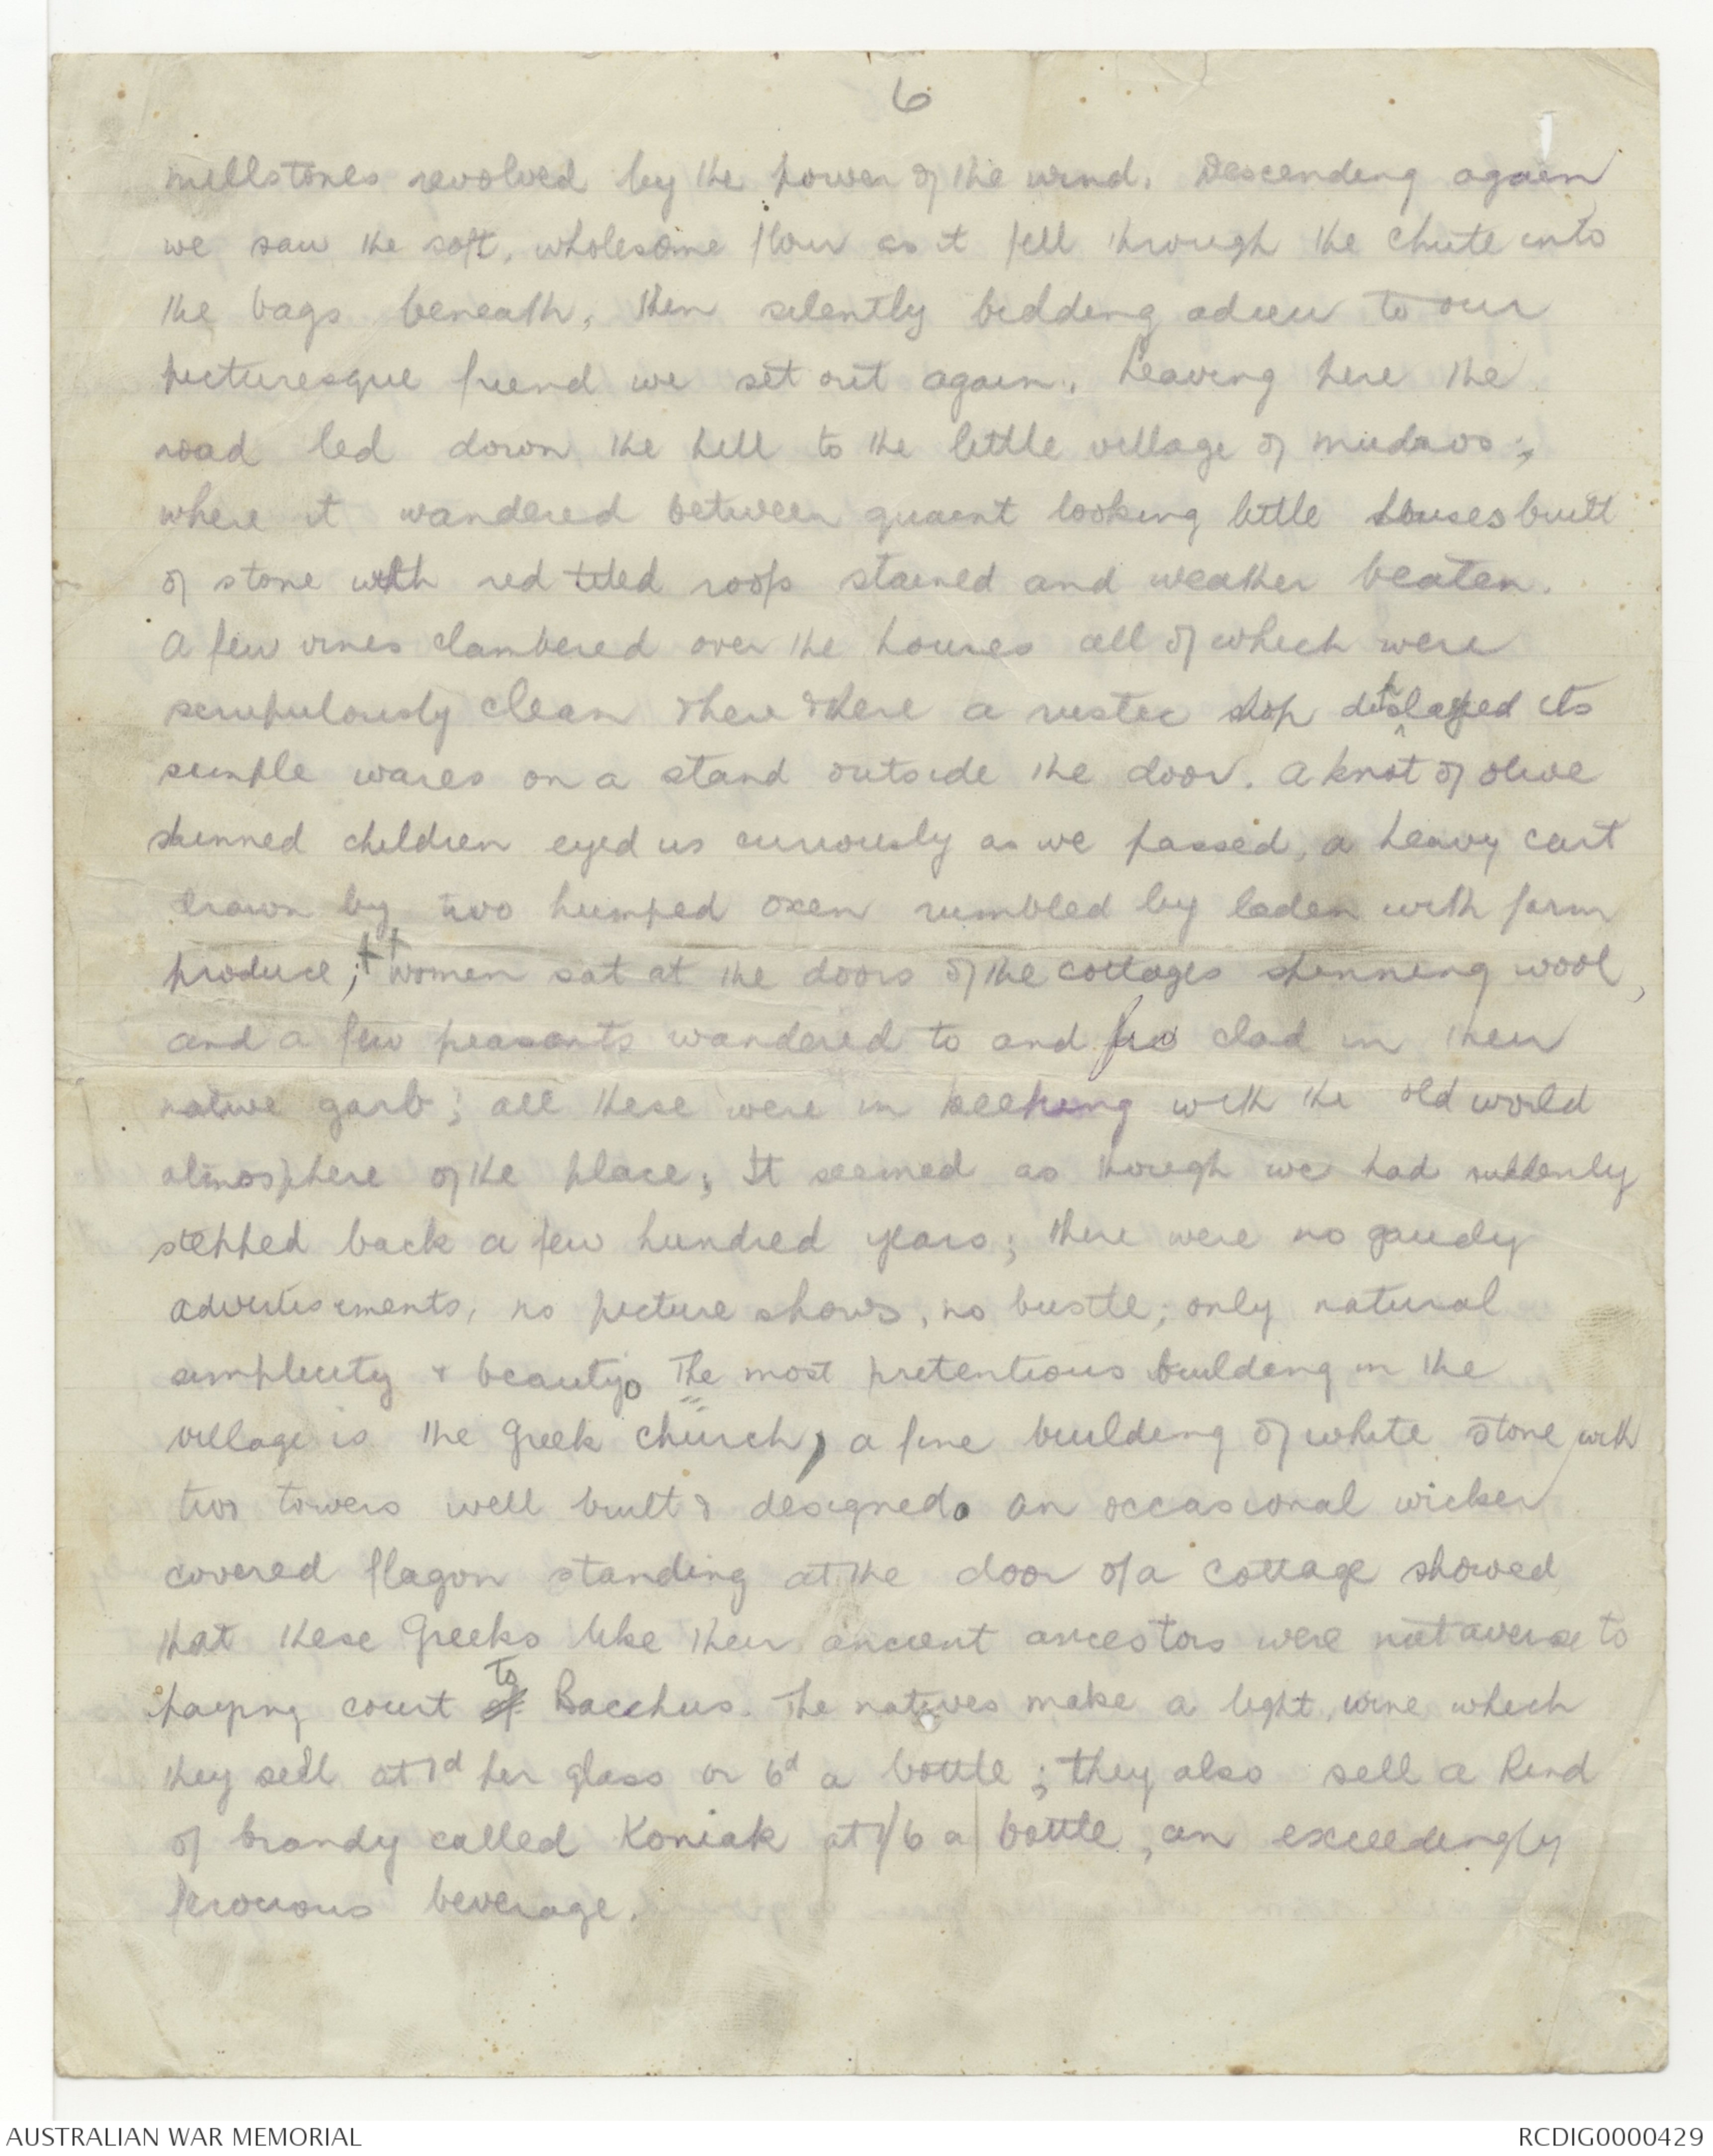 6
millstones revolved by the power of the wind. Descending again
we saw the soft, wholesome flour as it fell through the chute into
the bags beneath, then silently bidding adieu to our
picturesque friend we set out again. Leaving here the
road led down the hill to the little village of mudros;
where it wandered between quaint looking little houses built
of stone with red tiled roofs stained and weather beaten.
A few vines clambered over the houses all of which were
scrupulously clean & here & there a rustic shop displayed its
simple wares on a stand outside the door. A knot of olive
skinned children eyed us curiously as we passed, a heavy cart
drawn by two humped oxen rumbled by laden with farm
produce; women sat at the doors of the cottages spinning wool,
and a few peasants wandered to and fro clad in their
native garb; all these were in keeping with the old world
atmosphere of the place; It seemed as though we had suddenly
stepped back a few hundred years; there were no gaudy
advertisements, no picture shows, no bustle; only natural
simplicity & beauty. The most pretentious building in the
village is the Greek church, a fine building of white stone with
two towers well built & designed. An occasional wicker
covered flagon standing at the door of a cottage showed
that these Greeks like their ancient ancestors were not averse to
paying court to Bacchus. The natives make a light wine which
they sell at 1d per glass or 6d a bottle; they also sell a kind
of brandy called Koniak at 1/6 a bottle, an exceedingly
ferocious beverage.
AUSTRALIAN WAR MEMORIAL
RCDIG0000429